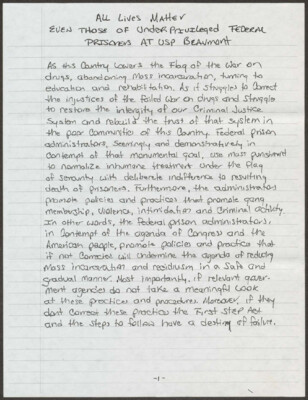 All Lives Matter
Even Those of Underprivileged Federal
Prisoners at USP Beaumont
As this Country Lowers the Flag of the War on
drugs, abandoning Mass incarceration, turning to
education and rehabilitation. As it struggles to correct
the injustices of the failed War on drugs and struggle
to restore the integrity of our Criminal Justice
System and rebuild the trust of that system in
the poor Communities of this Country. Federal prison
administrators, Seemingly and demonstratively in
Contempt of that monumental goal, use mass punishment
to normalize inhumane treatment under the Flag
of security with deliberate indifference to resulting
death of prisoners. Furthermore, the administrators
promote policies and practices that promote gang
membership, Violence, intimidation and Criminal activity
In other words, the Federal prison administrators,
in Contempt of the agenda of Congress and the
American people, promote policies and practice that
if not Corrected will undermine the agenda of reducing
Mass incarceration and residivism in a safe and
gradual manner. Most importantly, if relevant gover-
ment agencies do not take a meaningful look
at these practices and procedures. Moreover, if they
don't correct these practices the First Step Act
and the steps to follow have a destiny of failure.
-1-